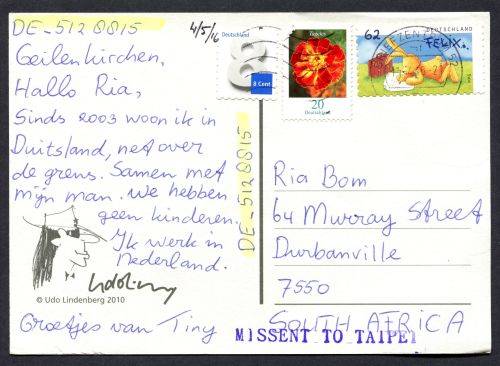 DE-5128815
4/5/16
Geilenkirchen,
Hallo Ria,
Sinds 2003 woon ik in
Duitsland, net over
de grens. Samen met
mijn man. We hebben
geen kinderen.
Ik werk in
nederland.
© Udo Lindenberg 2010
Groetjes van Tiny
DE-5128815
Deutschland
8
8 Cent
Tagetes
20
Deutschland
62
DEUTSCHLAND
FELIX
Ria Bom
64 Murray Street
Durbanville
7550
SOUTH AFRICA
MISSENT TO TAIPEI